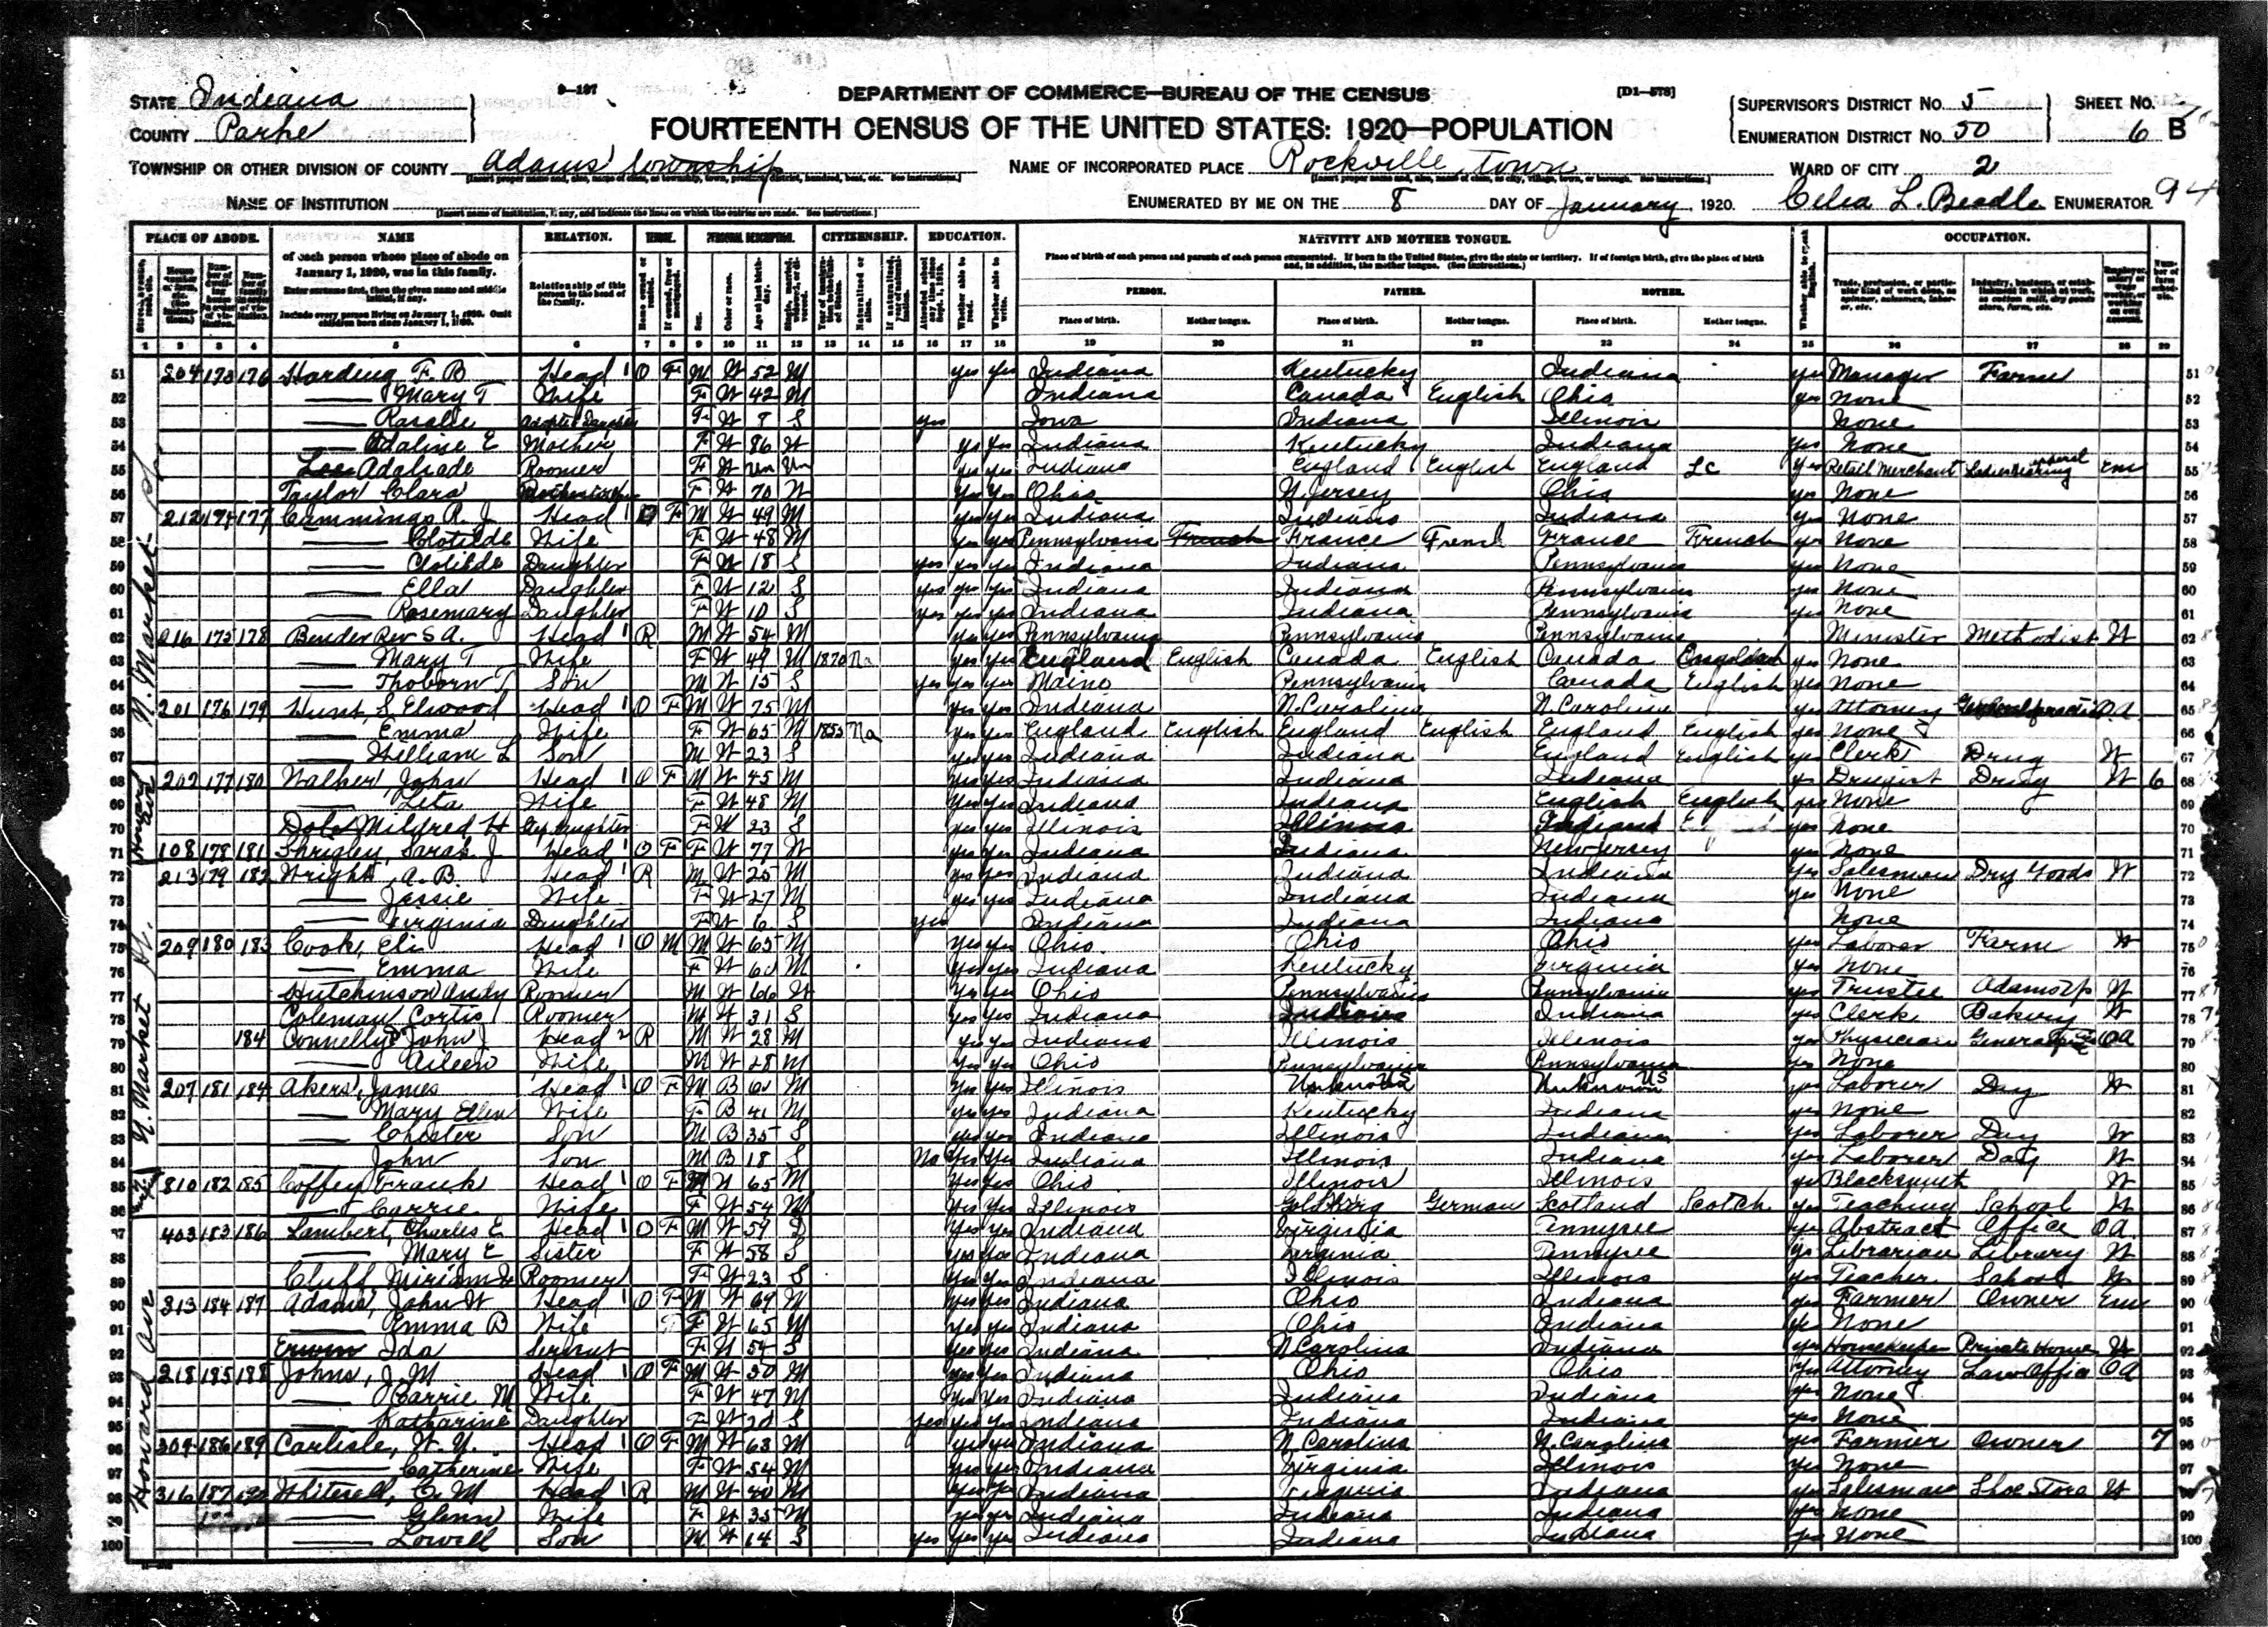 STATE Indiana
COUNTY Parke
9—197
DEPARTMENT OF COMMERCE—BUREAU OF THE CENSUS
[D1—578]
FOURTEENTH CENSUS OF THE UNITED STATES: 1920—POPULATION
SUPERVISOR'S DISTRICT NO. 5
ENUMERATION DISTRICT NO. 50
SHEET NO. 6 B
TOWNSHIP OR OTHER DIVISION OF COUNTY Adams township
NAME OF INCORPORATED PLACE Rockville town
WARD OF CITY 2
NAME OF INSTITUTION
ENUMERATED BY ME ON THE 8 DAY OF January, 1920. Celia L. Beadle ENUMERATOR 94
PLACE OF ABODE. NAME RELATION. TENURE. PERSONAL DESCRIPTION. CITIZENSHIP. EDUCATION. NATIVITY AND MOTHER TONGUE. OCCUPATION.
of each person whose place of abode on January 1, 1920, was in this family.
Enter surname first, then the given name and middle initial, if any.
Include every person living on January 1, 1920. Omit children born since January 1, 1920.
Relationship of this person to the head of the family.
Place of birth of each person and parents of each person enumerated. If born in the United States, give the state or territory. If of foreign birth, give the place of birth and, in addition, the mother tongue. (See Instructions.)
PERSON. FATHER. MOTHER.
Place of birth. Mother tongue. Place of birth. Mother tongue. Place of birth. Mother tongue.
1 2 3 4 5 6 7 8 9 10 11 12 13 14 15 16 17 18 19 20 21 22 23 24 25 26 27 28 29
N. Market St
51 204 173 176 Harding F. B Head 1 O F M W 52 M yes yes Indiana Kentucky Indiana yes Manager Farm 51
52 Mary T Wife F W 42 M Indiana Canada English Ohio yes None 52
53 Rosalie adopted Daughter F W 8 S yes Iowa Indiana Illinois None 53
54 Adaline E Mother F W 86 W yes yes Indiana Kentucky Indiana yes None 54
55 Lee Adalaide Roomer F W un Un yes yes Indiana England English England yes Retail Merchant em 55
56 Taylor Clara F W 70 W yes yes Ohio N. Jersey Ohio yes None 56
57 212 174 177 Cummings R. J. Head 1 O F M W 49 M yes yes Indiana Indiana Indiana yes None 57
58 Clotilde Wife F W 48 M yes yes Pennsylvania French France French France French yes None 58
59 Clotilde Daughter F W 18 S yes yes yes Indiana Indiana Pennsylvania yes None 59
60 Ella Daughter F W 12 S yes yes yes Indiana Indiana Pennsylvania yes None 60
61 Rosemary Daughter F W 10 S yes yes yes Indiana Indiana Pennsylvania yes None 61
62 216 175 178 Bender Rev S A. Head 1 R M W 54 M yes yes Pennsylvania Pennsylvania Pennsylvania Minister Methodist W 62
63 Mary T Wife F W 49 M 1870 Na yes yes England English Canada English Canada yes None 63
64 Thoborn T Son M W 15 S yes yes yes Maine Pennsylvania Canada English yes None 64
65 201 176 179 Hunt, S. Elwood Head 1 O F M W 75 M yes yes Indiana N. Carolina N. Carolina yes Attorney OA 65
66 Emma Wife F W 65 M 1855 Na yes yes England English England English England English yes None 66
67 William L Son M W 23 S yes yes Indiana Indiana England English yes Clerk Drug W 67
Howard Ave
68 202 177 180 Walker, John Head 1 O F M W 45 M yes yes Indiana Indiana Indiana yes Drugist Drug W 6 68
69 Zeta Wife F W 48 M yes yes Indiana Indiana English English yes None 69
70 Dole Mildred H Step Daughter F W 23 S yes yes Illinois Illinois Indiana yes None 70
71 108 178 181 Shrigley, Sarah J Head 1 O F F W 77 W yes yes Indiana Indiana New Jersey yes None 71
N. Market St.
72 213 179 182 Wright, A. B. Head 1 R M W 25 M yes yes Indiana Indiana Indiana yes Salesman Dry Goods W 72
73 Jassie Wife F W 27 M yes yes Indiana Indiana Indiana yes None 73
74 Virginia Daughter F W 6 S yes Indiana Indiana Indiana None 74
75 209 180 183 Cook, Eli Head 1 O M M W 65 M yes yes Ohio Ohio Ohio yes Laborer Farm W 75
76 Emma Wife F W 60 M yes yes Indiana Kentucky Virginia yes None 76
77 Hutchinson Andy Roomer M W 66 W yes yes Ohio Pennsylvania Pennsylvania yes Trustee Adams Tp W 77
78 Coleman Cortis Roomer M W 31 S yes yes Indiana Indiana Indiana yes Clerk Bakery W 78
79 184 Connelly Dr John J Head 2 R M W 28 M yes yes Indiana Illinois Illinois yes Physician General OA 79
80 Aileen Wife M W 28 M yes yes Ohio Pennsylvania Pennsylvania yes None 80
81 207 181 184 Akers, James Head 1 O F M B 60 M yes yes Illinois Unknown Unknown US yes Laborer Day W 81
82 Mary Ellen Wife F B 41 M yes yes Indiana Kentucky Indiana yes None 82
83 Chester Son M B 35 S yes yes Indiana Illinois Indiana yes Laborer Day W 83
84 John Son M B 18 S No yes yes Indiana Illinois Indiana yes Laborer Day W 84
85 810 182 185 Coffey Frank Head 1 O F M W 65 M yes yes Ohio Illinois Illinois yes Blacksmith W 85
86 Carrie Wife F W 54 M yes yes Illinois German Scotland Scotch yes Teaching School W 86
Howard Ave
87 403 183 186 Lambert, Charles E Head 1 O F M W 59 D yes yes Indiana Virginia Tennysee yes Abstract Office OA 87
88 Mary E Sister F W 58 S yes yes Indiana Virginia Tennysee yes Librarian Library W 88
89 Cluff Miriam Roomer F W 23 S yes yes Indiana Illinois Illinois yes Teacher School W 89
90 313 184 187 Adams, John W Head 1 O F M W 69 M yes yes Indiana Ohio Indiana yes Farmer Owner Em 90
91 Emma B Wife F W 65 M yes yes Indiana Ohio Indiana yes None 91
92 Erwin Ida Servant F W 54 S yes yes Indiana N Carolina Indiana yes Housekeeper Private Home W 92
93 218 185 188 Johns, J M Head 1 O F M W 50 M yes yes Indiana Ohio Ohio yes Attorney Law Office OA 93
94 Carrie M Wife F W 47 M yes yes Indiana Indiana Indiana yes None 94
95 Katharine Daughter F W 20 S yes yes yes Indiana Indiana Indiana yes None 95
96 309 186 189 Carlisle, W. Y. Head 1 O F M W 63 M yes yes Indiana N. Carolina N. Carolina yes Farmer Owner 7 96
97 Catherine Wife F W 54 M yes yes Indiana Virginia Illinois yes None 97
98 316 187 190 Whitesell, O. M Head 1 R M W 40 M yes yes Indiana Virginia Indiana yes Salesman Shoe Store W 98
99 Glenn Wife F W 35 M yes yes Indiana Indiana Indiana yes None 99
100 Lowell Son M W 14 S yes yes yes Indiana Indiana Indiana yes None 100